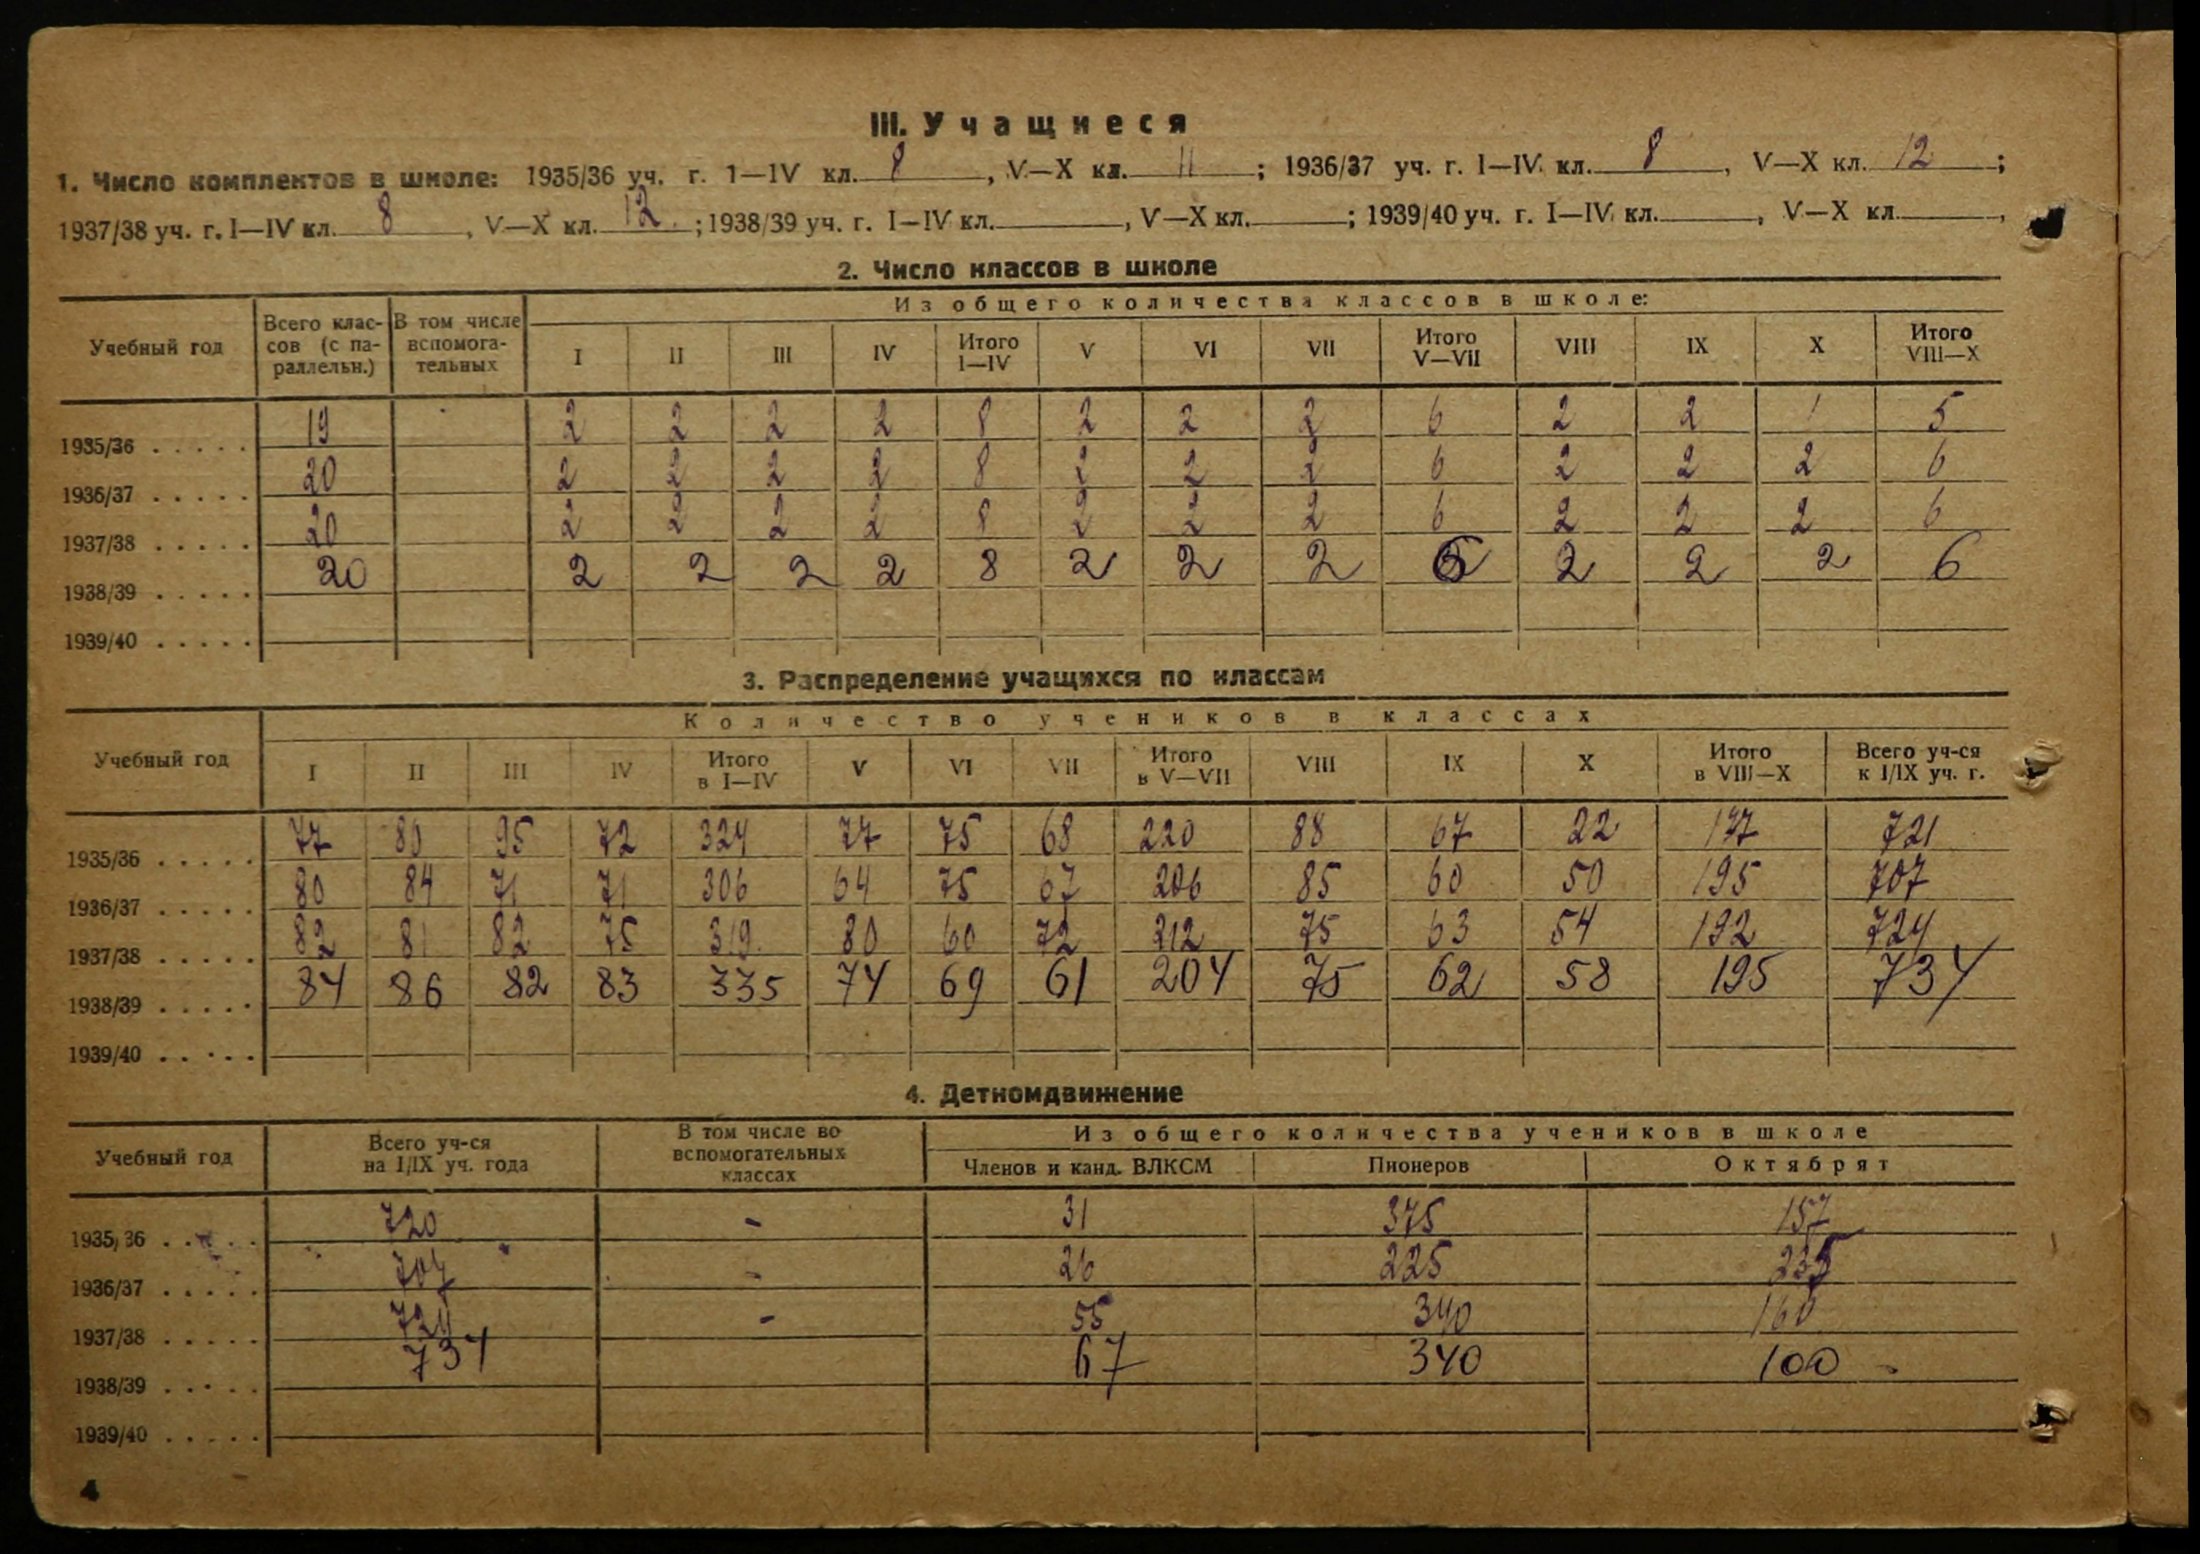 III. Учащиеся
1. Число комплектов в школе: 1935/36 уч. г. I—IV кл. 8, V—X кл. 11; 1936/37 уч. г. I—IV кл. 8, V—X кл. 12;
1937/38 уч. г. I—IV кл. 8, V—X кл. 12; 1938/39 уч. г. I—IV кл. , V—X кл. ; 1939/40 уч. г. I—IV кл. , V—X кл. ,
2. Число классов в школе
Учебный год Всего классов (с параллельн.) В том числе вспомогательных Из общего количества классов в школе:
I II III IV Итого I—IV V VI VII Итого V—VII VIII IX X Итого VIII—X
1935/36 . . . . . 19 2 2 2 2 8 2 2 2 6 2 2 1 5
1936/37 . . . . . 20 2 2 2 2 8 2 2 2 6 2 2 2 6
1937/38 . . . . . 20 2 2 2 2 8 2 2 2 6 2 2 2 6
1938/39 . . . . . 20 2 2 2 2 8 2 2 2 6 2 2 2 6
1939/40 . . . . .
3. Распределение учащихся по классам
Учебный год Количество учеников в классах
I II III IV Итого в I—IV V VI VII Итого в V—VII VIII IX X Итого в VIII—X Всего уч-ся к I/IX уч. г.
1935/36 . . . . . 77 80 95 72 324 77 75 68 220 88 67 22 177 721
1936/37 . . . . . 80 84 71 71 306 64 75 67 206 85 60 50 195 707
1937/38 . . . . . 82 81 82 75 319 80 60 72 212 75 63 54 192 724
1938/39 . . . . . 84 86 82 83 335 74 69 61 204 75 62 58 195 734
1939/40 . . . . .
4. Деткомдвижение
Учебный год Всего уч-ся на I/IX уч. года В том числе во вспомогательных классах Из общего количества учеников в школе
Членов и канд. ВЛКСМ Пионеров Октябрят
1935/36 . . . . . 720 - 31 375 157
1936/37 . . . . . 707 - 26 225
1937/38 . . . . . 724 - 55 340 160
1938/39 . . . . . 734 67 340 100
1939/40 . . . . .
4